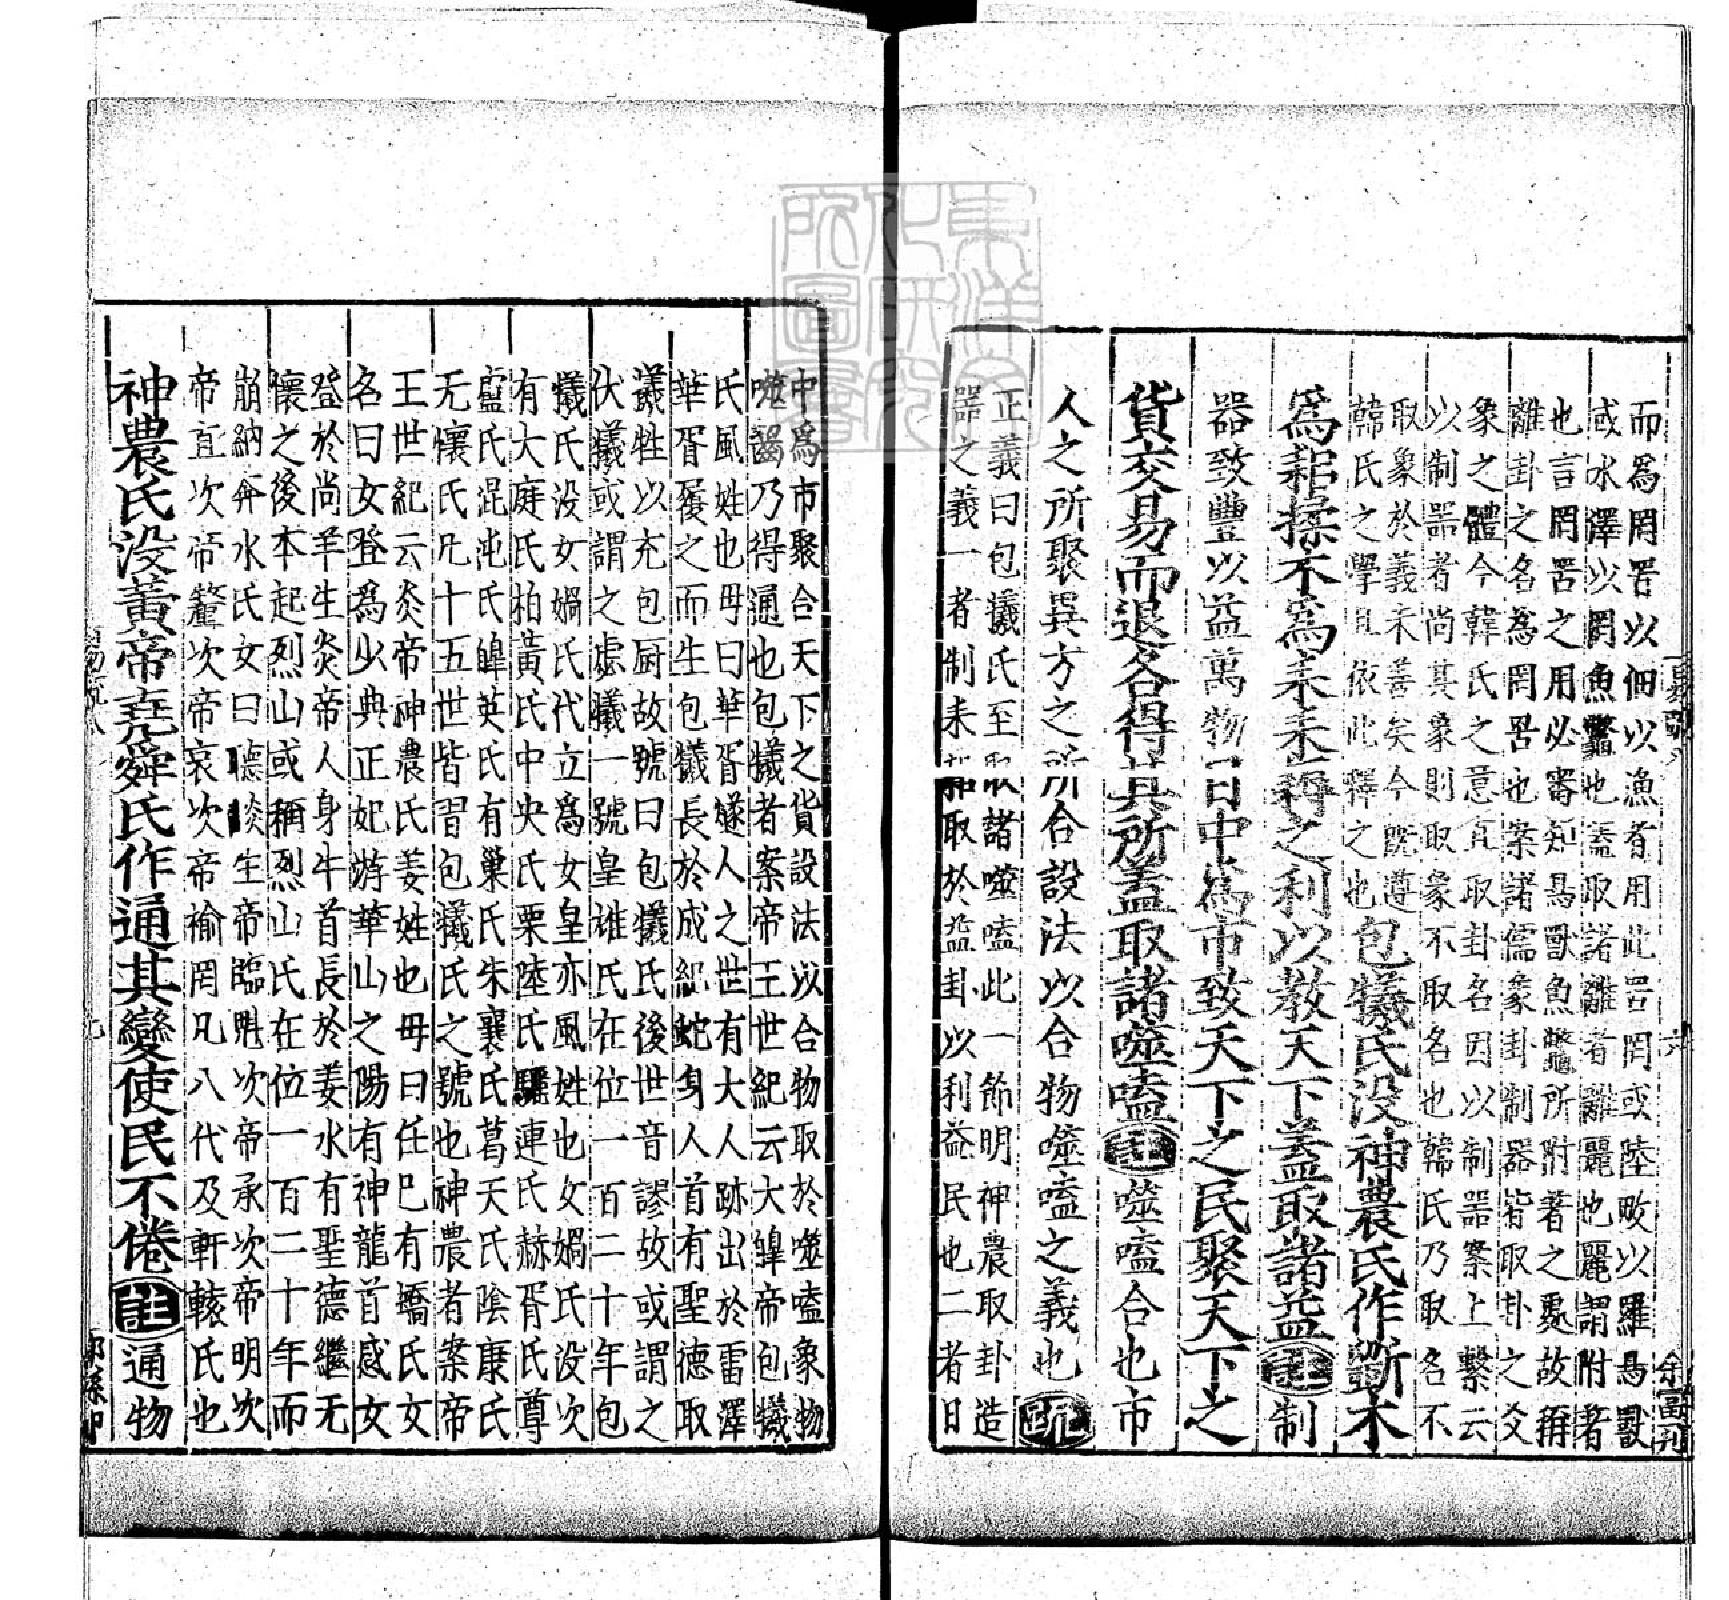 而爲罔罟以佃以漁者用此罟罔或陸畋以羅鳥獸
或水澤以罔魚鼈也蓋取諸離者離麗也麗謂附著
也言罔罟之用必審知鳥獸魚鼈所附著之處故稱
離卦之名爲罔罟也案諸儒象卦制器皆取卦之爻
象之體今韓氏之意直取卦名因以制器案上繫云
以制器者尚其象則取象不取名也韓氏乃取名不
取象於義未善矣今旣遵
韓氏之學且依此釋之也
包犧氏没神農氏作斲木
爲耜揉木爲耒耒耨之利以敎天下蓋取諸益
註
制
器致豐以益萬物
日中爲市致天下之民聚天下之
貨交易而退各得其所蓋取諸噬嗑
註
噬嗑合也市
人之所聚異方之所合設法以合物噬嗑之義也
疏
正義曰包犧氏至取諸噬嗑此一節明神農取卦造
器之義一者制耒耜取於益卦以利益民也二者日
中爲市聚合天下之貨設法以合物取於噬嗑象物
噬齧乃得通也包犧者案帝王世紀云大皥帝包犧
氏風姓也母曰華胥燧人之世有大人跡出於雷澤
華胥履之而生包犧長於成紀蛇身人首有聖德取
犧牲以充包厨故號曰包犧氏後世音謬故或謂之
伏犧或謂之虙犧一號皇雄氏在位一百一十年包
犧氏没女媧氏代立爲女皇亦風姓也女媧氏没次
有大庭氏柏黃氏中央氏栗陸氏驪連氏赫胥氏尊
盧氏混沌氏皥英氏有巢氏朱襄氏葛天氏陰康氏
无懷氏凡十五世皆習包犧氏之號也神農者案帝
王世紀云炎帝神農氏姜姓也母曰任巳有蟜氏女
名曰女登爲少典正妃游華山之陽有神龍首感女
登於尚羊生炎帝人身牛首長於姜水有聖德繼无
懷之後本起烈山或稱烈山氏在位一百二十年而
崩納奔水氏女曰聽談生帝臨魁次帝承次帝明次
帝直次帝釐次帝哀次帝榆罔凡八代及軒轅氏也
神農氏没黃帝堯舜氏作通其變使民不倦
註
通物